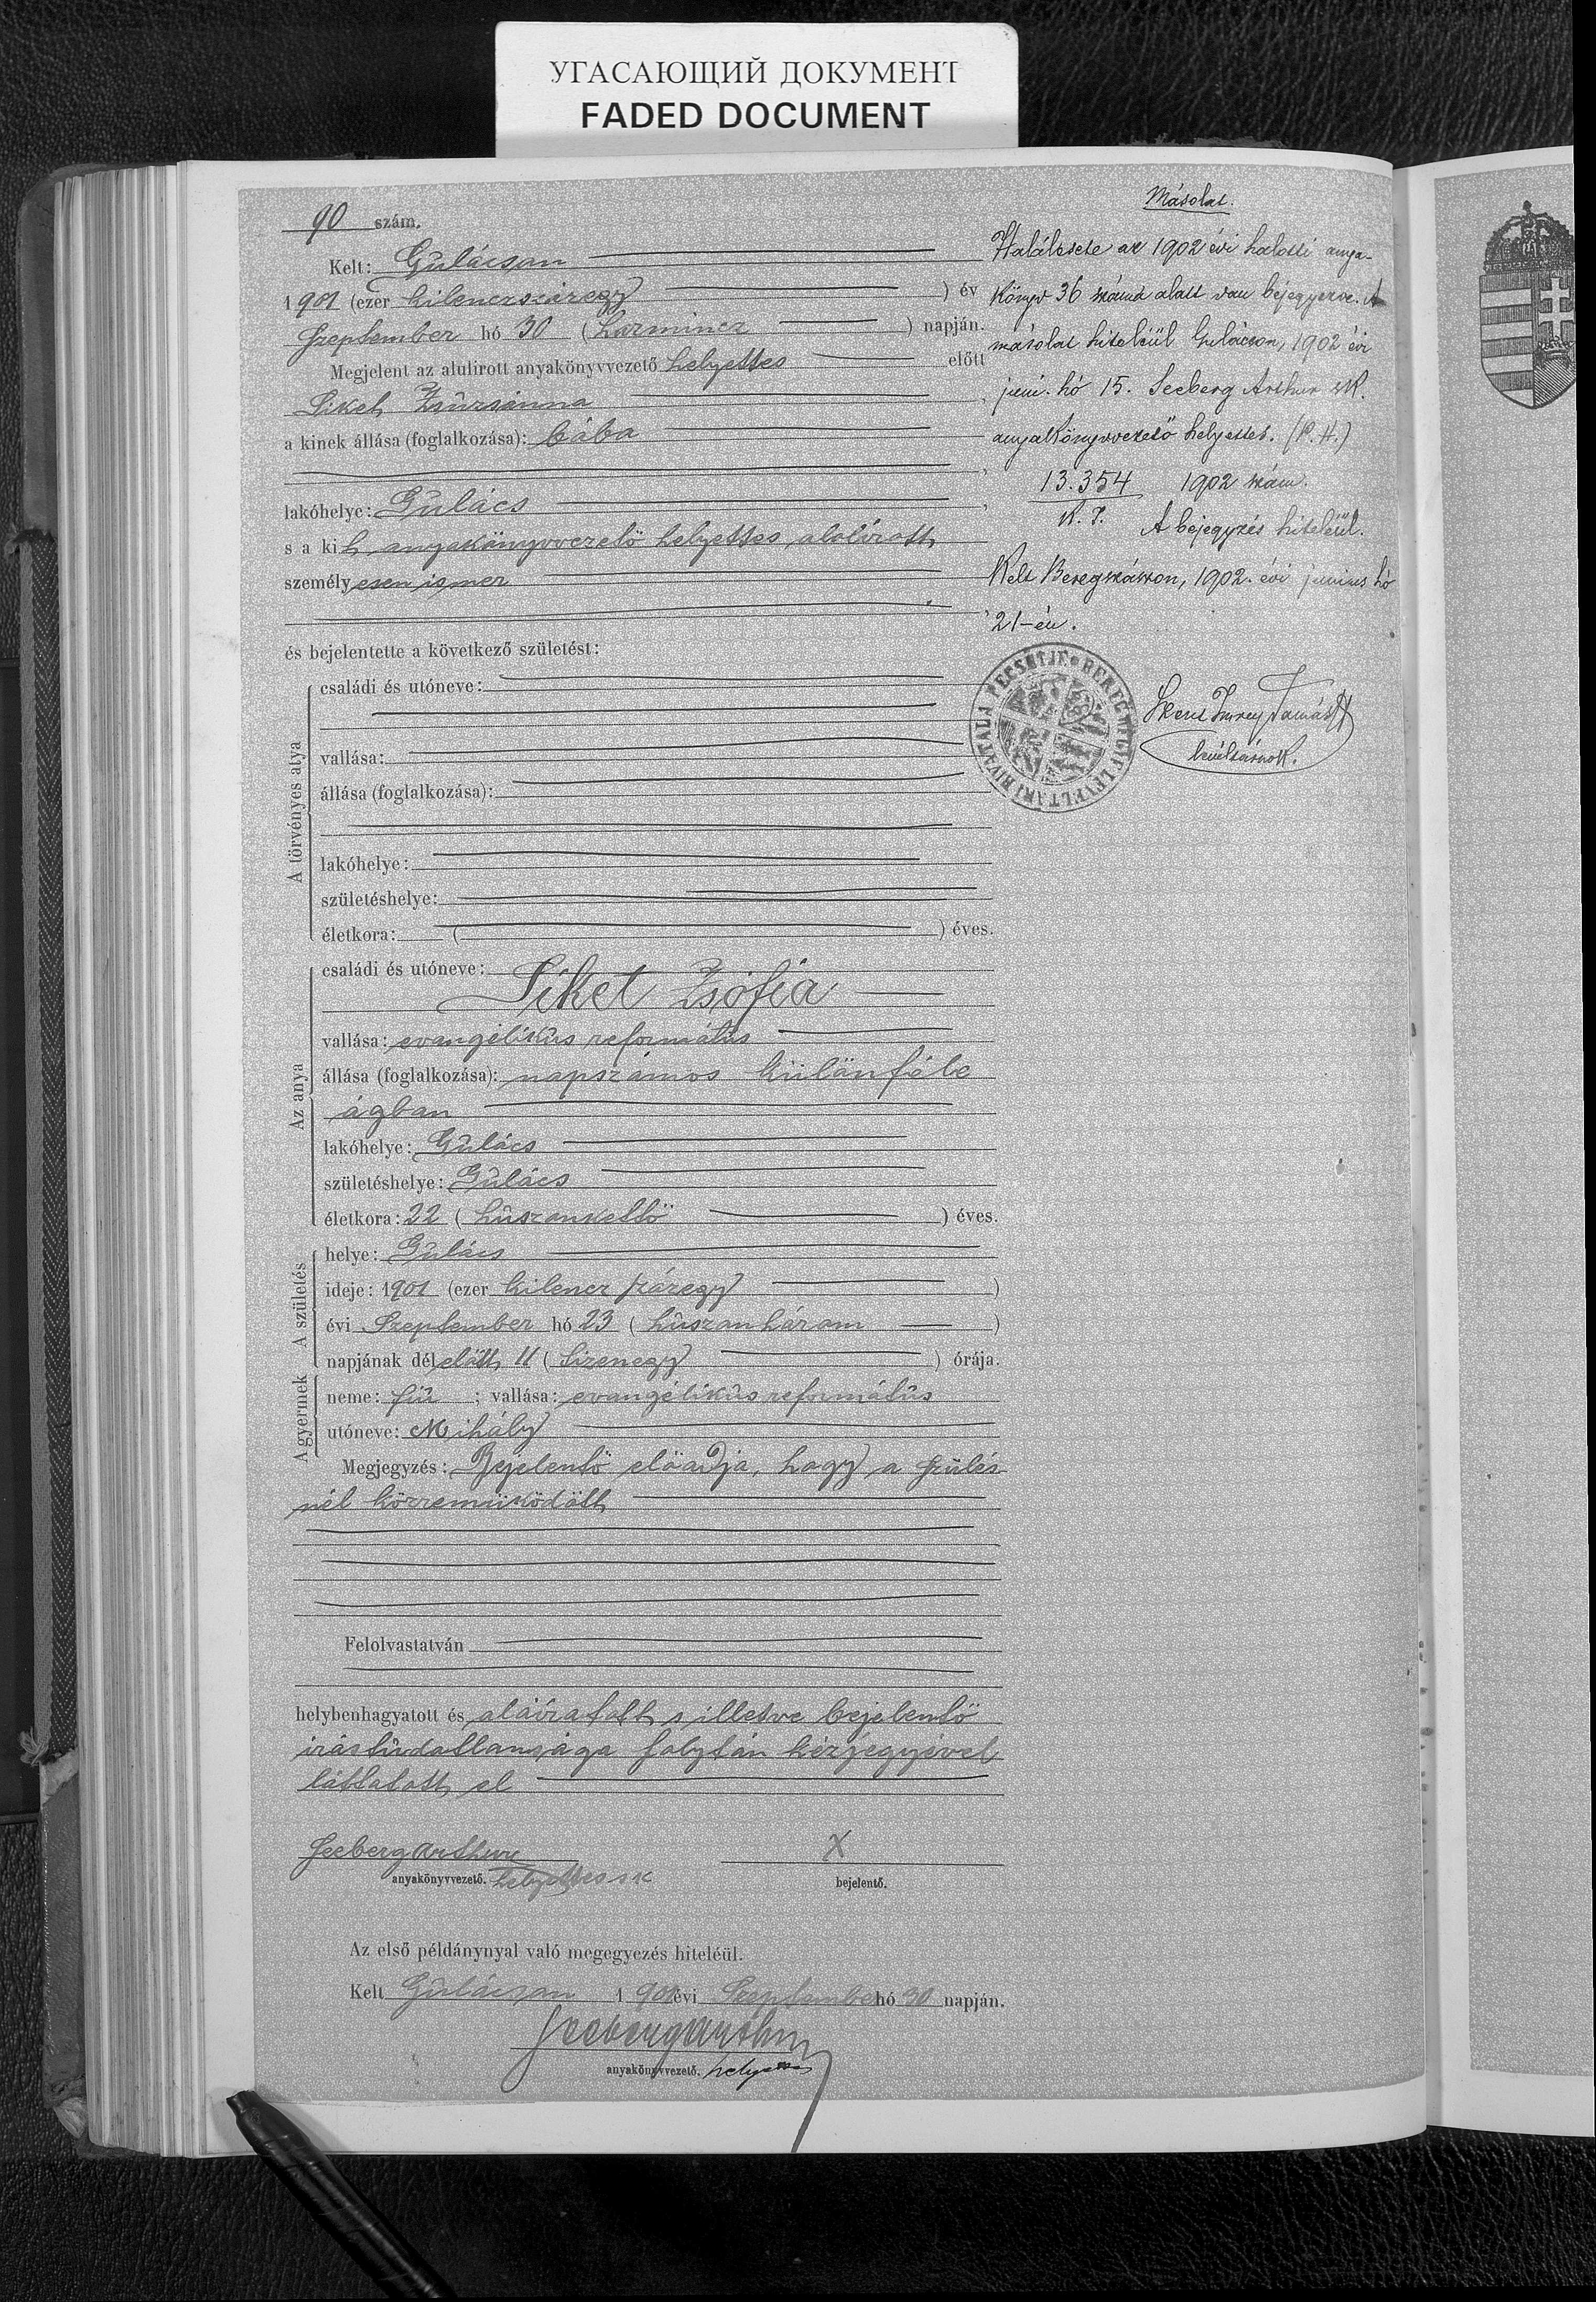 УГАСАЮЩИЙ ДОКУМЕНТ
FADED DOCUMENT
90 szám.
Kelt: Gulácson
1901 (ezer kilenczszázegy) év
Szeptember hó 30 (harmincz) napján.
Megjelent az alulirott anyakönyvvezető helyettes előtt
Siket Zsuzsánna,
a kinek állása (foglalkozása): bába
lakóhelye: Gulács,
s a kit anyakönyvvezető helyettes alolírott
személyesen ismer
és bejelentette a következő születést:
A törvényes atya
családi és utóneve:
vallása:
állása (foglalkozása):
lakóhelye:
születéshelye:
életkora: ( ) éves.
Az anya
családi és utóneve:
Siket Zsófia
vallása: evangélikus református
állása (foglalkozása): napszámos különféle
ágban
lakóhelye: Gulács
születéshelye: Gulács
életkora: 22 (huszonkettő) éves.
A születés
helye: Gulács
ideje: 1901 (ezer kilencz százegy)
évi Szeptember hó 23 (huszonhárom)
napjának délelőtt 11 (tizenegy) órája.
A gyermek
neme: fiú; vallása: evangélikus református
utóneve: Mihály
Megjegyzés: Bejelentő előadja, hogy a szülés-
nél közremüködött
Felolvastatván
helybenhagyatott és aláíratott, illetve bejelentő
irástudatlansága folytán kézjegyével
láttatott el
Seeberg Arthur X
anyakönyvvezető. helyettes sk bejelentő.
Az első példánynyal való megegyezés hiteléül.
Kelt Gulácson 1901 évi Szeptember hó 30 napján.
Seeberg Arthur
anyakönyvvezető. helyettes
Másolat.
Halálesete az 1902 évi halotti anya-
könyv 36 száma alatt van bejegyezve. A
másolat hiteléül Gulácson, 1902 évi
juni. hó 15. Seeberg Arthur sk.
anyakönyvvezető helyettes. (P.H.)
13.354 1902 szám.
K. I.
A bejegyzés hiteléül.
Kelt Beregszászon, 1902. évi junius hó
21-én.
BEREGMEGYE LEVÉLTÁRI HIVATALA PECSÉTJE
Tamás
levéltárnok.